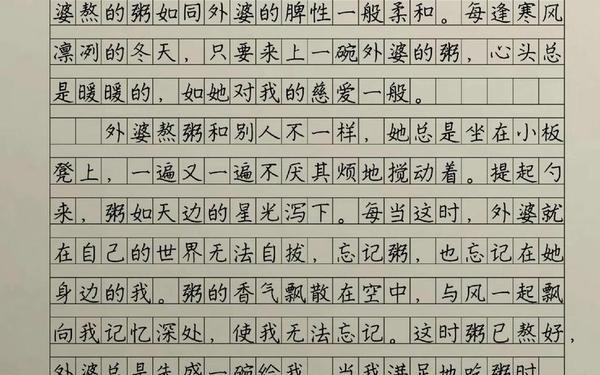 婆熬的粥如同外婆的脾性一般柔和。每逢寒风
凛冽的冬天，只要来上一碗外婆的粥，心头总
是暖暖的，如她对我的慈爱一般。
外婆熬粥和别人不一样，她总是坐在小板
凳上，一遍又一遍不厌其烦地搅动着。提起勺
来，粥如天边的星光泻下。每当这时，外婆就
在自己的世界无法自拔，忘记粥，也忘记在她
身边的我。粥的香气飘散在空中，与风一起飘
向我记忆深处，使我无法忘记。这时粥已熬好，
外婆总是先盛一碗给我，当我满足地吃粥时